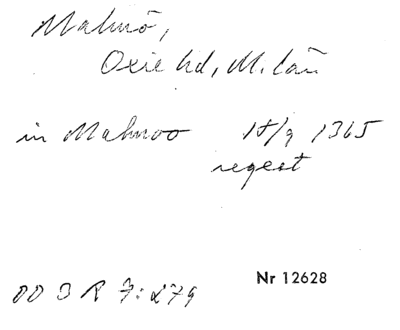 Malmö,
Oxie hd, M. län
in Malmoo 18/9 1365
regest
DD 3 R 7:279
Nr 12628